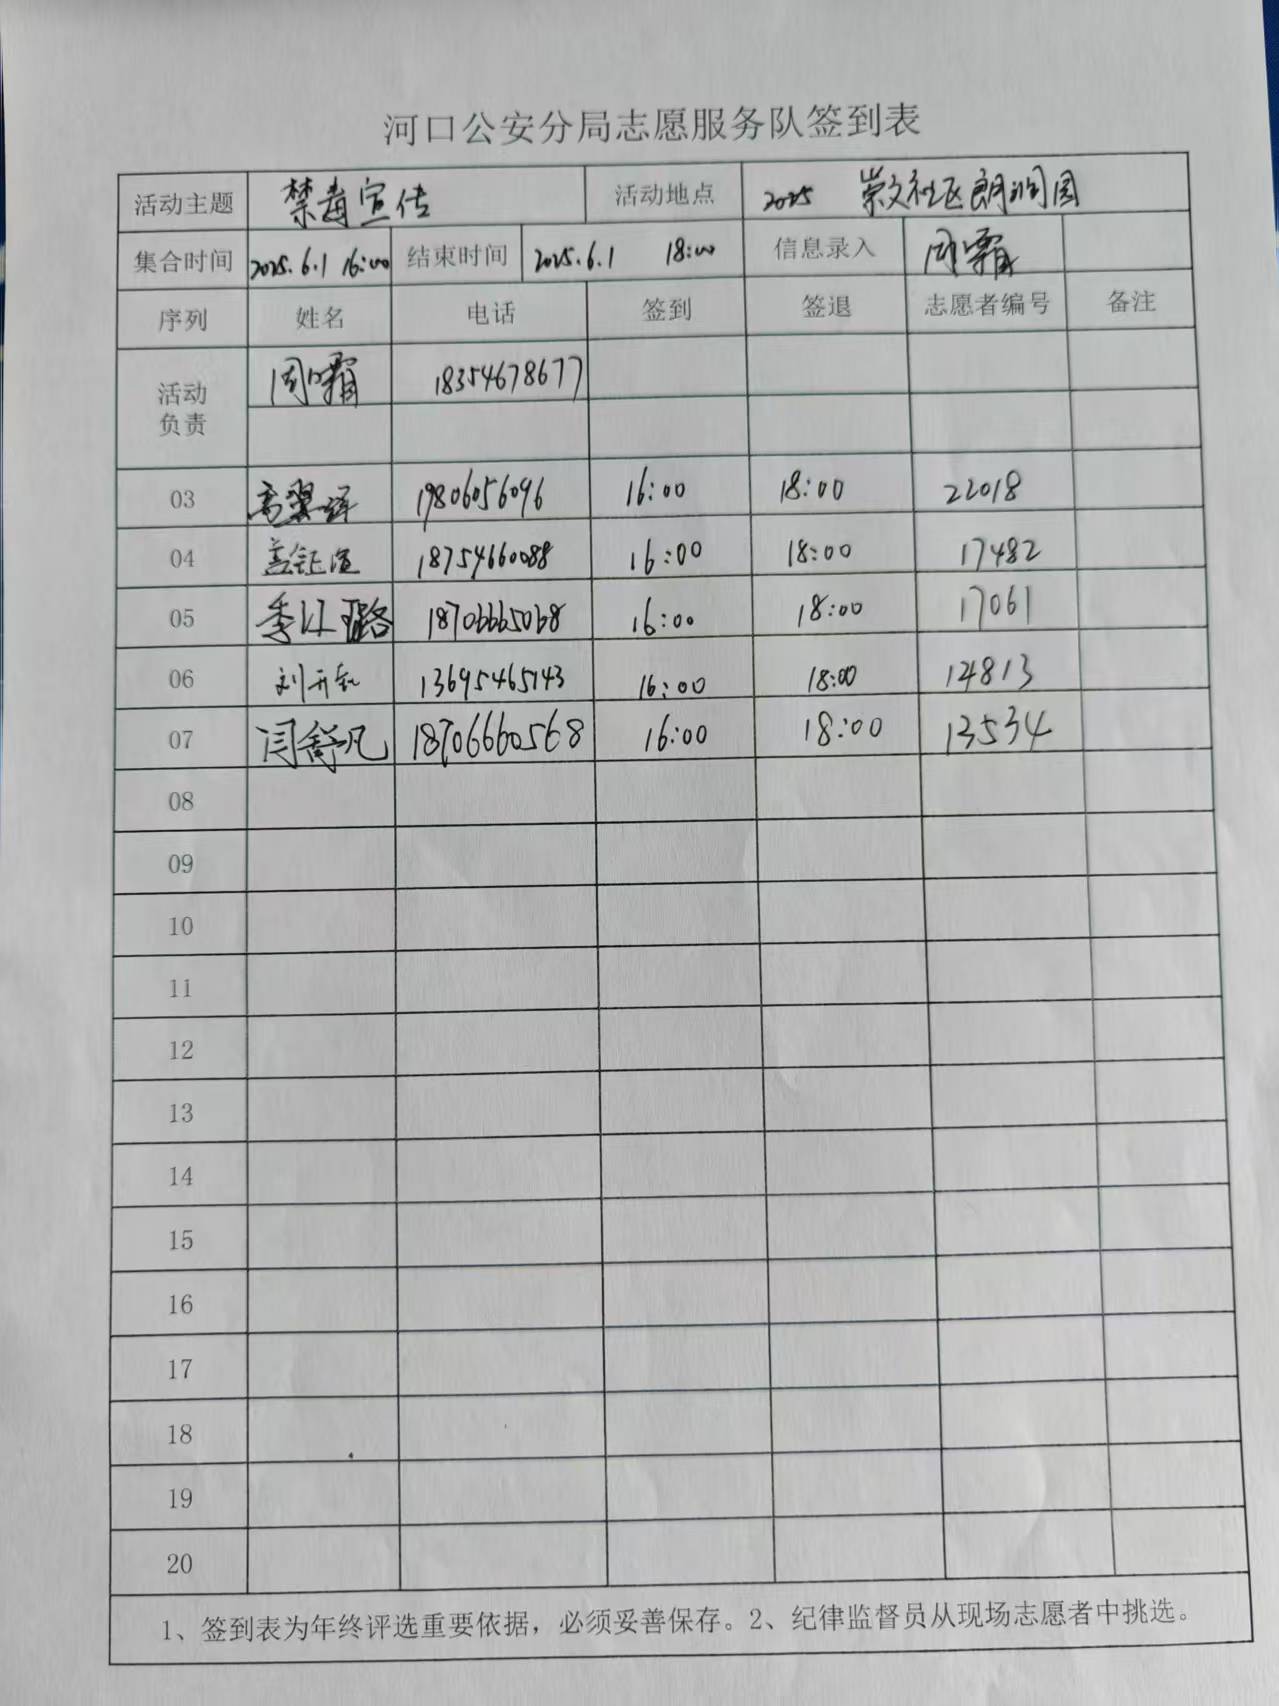 河口公安分局志愿服务队签到表
活动主题 禁毒宣传 活动地点 2025 崇文社区朗润园
集合时间 2025.6.1 16:00 结束时间 2025.6.1 18:00 信息录入 周霜
序列 姓名 电话 签到 签退 志愿者编号 备注
活动负责 周霜 18354678677
03 高翼译 19806056096 16:00 18:00 22018
04 盖钰渲 18754660088 16:00 18:00 17482
05 季江璐 18706665068 16:00 18:00 17061
06 刘开 13695465143 16:00 18:00 14813
07 闫舒凡 18706660568 16:00 18:00 13534
08
09
10
11
12
13
14
15
16
17
18
19
20
1、签到表为年终评选重要依据，必须妥善保存。2、纪律监督员从现场志愿者中挑选。